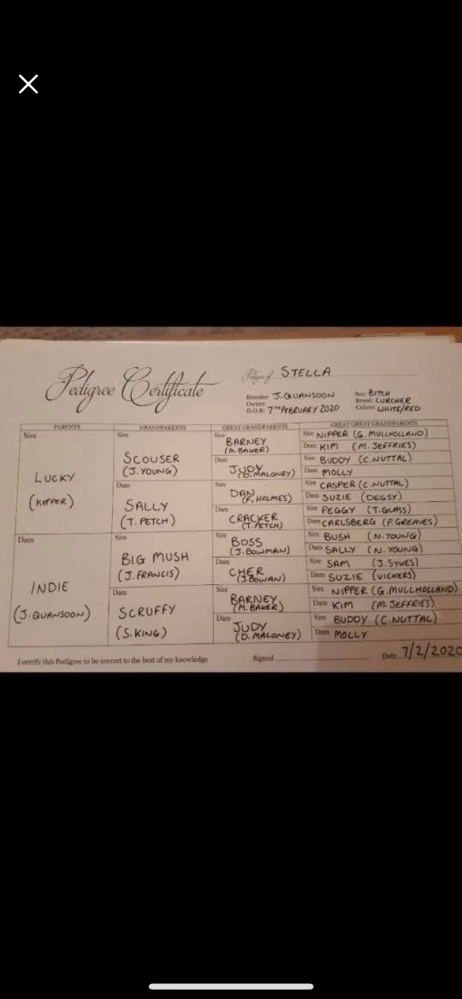 Pedigree Certificate
Pedigree of STELLA
Breeder: J. QUANSOON Sex: BITCH
Owner: Breed: LURCHER
D.O.B: 7TH FEBRUARY 2020 Colour: WHITE/RED
PARENTS GRANDPARENTS GREAT GRANDPARENTS GREAT GREAT GRANDPARENTS
Sire
LUCKY
(KIPPER)
Dam
INDIE
(J. QUANSOON)
Sire
SCOUSER
(J. YOUNG)
Dam
SALLY
(T. PETCH)
Sire
BIG MUSH
(J. FRANCIS)
Dam
SCRUFFY
(S. KING)
Sire
BARNEY
(M. BAKER)
Dam
JUDY
(D. MALONEY)
Sire
DAN
(F. HOLMES)
Dam
CRACKER
(T. PETCH)
Sire
BOSS
(J. BOWMAN)
Dam
CHER
(J. BOWAN)
Sire
BARNEY
(M. BAKER)
Dam
JUDY
(D. MALONEY)
Sire NIPPER (G. MULLHOLLAND)
Dam KIM (M. JEFFRIES)
Sire BUDDY (C. NUTTAL)
Dam MOLLY
Sire CASPER (C. NUTTAL)
Dam SUZIE (DEGSY)
Sire PEGGY (T. GLASS)
Dam CARLSBERG (P. GREAVES)
Sire BUSH (N. YOUNG)
Dam SALLY (N. YOUNG)
Sire SAM (J. SYKES)
Dam SUZIE (VICKERS)
Sire NIPPER (G. MULLHOLLAND)
Dam KIM (M. JEFFRIES)
Sire BUDDY (C. NUTTAL)
Dam MOLLY
I certify this Pedigree to be correct to the best of my knowledge Signed Date 7/2/2020